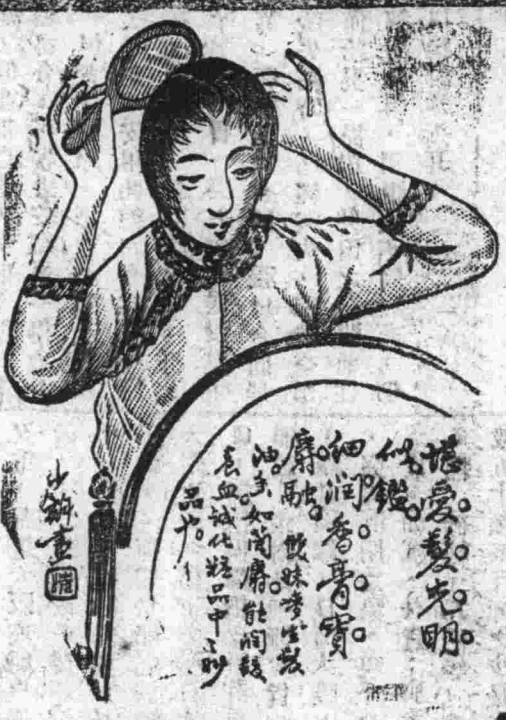 堪愛髮光明
似鑑。
細潤香膏寶
麝融。生髮
油香如蘭麝能潤髮
養血誠化粧品中之妙
品也。
畫